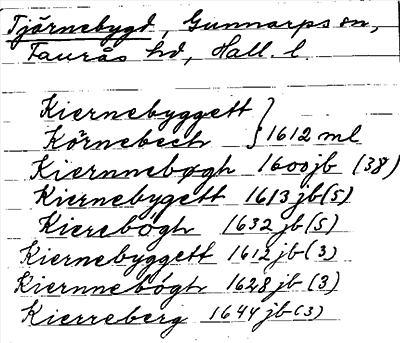 Tjärnebygd, Gunnarps sn,
Faurås hd, Hall. l.
Kiernebyggett
Körnebech } 1612 ml
Kiernnebøgh 1600 jb (38)
Kiernebygett 1613 jb (5)
Kierebögh 1632 jb (5)
Kiernebyggett 1612 jb (3)
Kiernnebögh 1628 jb (3)
Kierreberg 1644 jb (3)